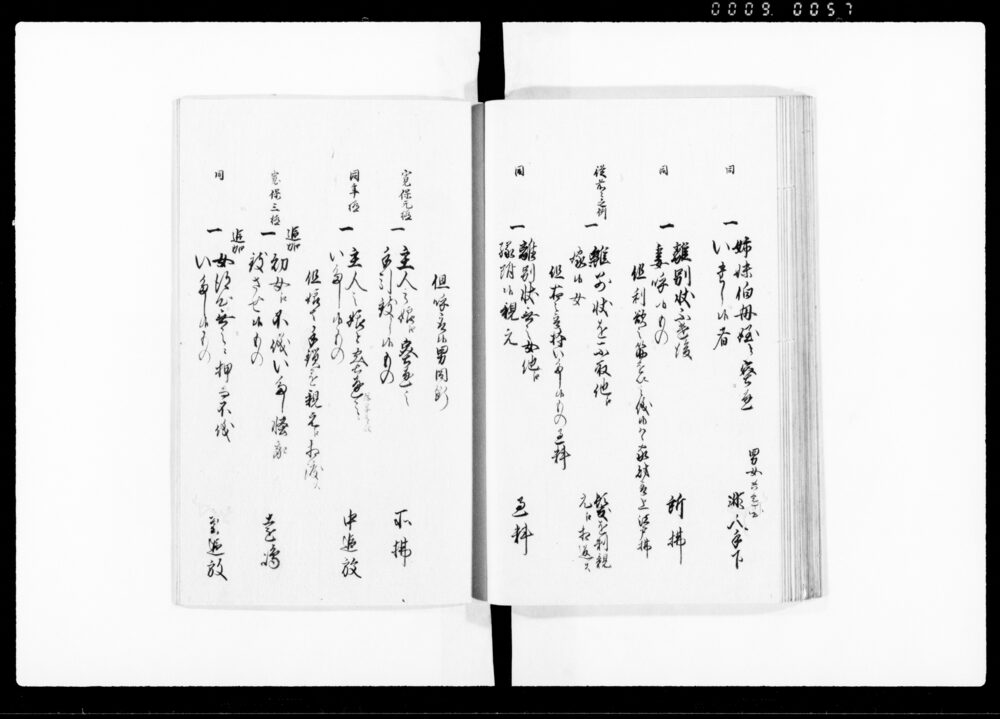 0009 0057
同
一 姉妹伯母姪と密通
いたし候者
男女共
非人手下
同
一 離別状不遣後
妻呼候もの
所払
但利欲之筋を以之儀候ハヽ家財取上江戸払
従前々之例
一 離別状を不取他江
嫁候女
髪を剃親
元江相返ス
但右之取持いたし候もの過料
同
一 離別状無之女他江
縁付候親元
過料
但呼取候男同断
寛保元極
一 主人之娘江密通之
手引致候もの
所払
同年極
一 主人之娘と密通
いたし候もの
中追放
但娘ハ手鎖かけ親元江相渡ス
寛保三極
追加
一 幼女江不義いたし怪我
致させ候もの
遠嶋
同
追加
一 女得心無之ニ押而不義
いたし候もの
重追放